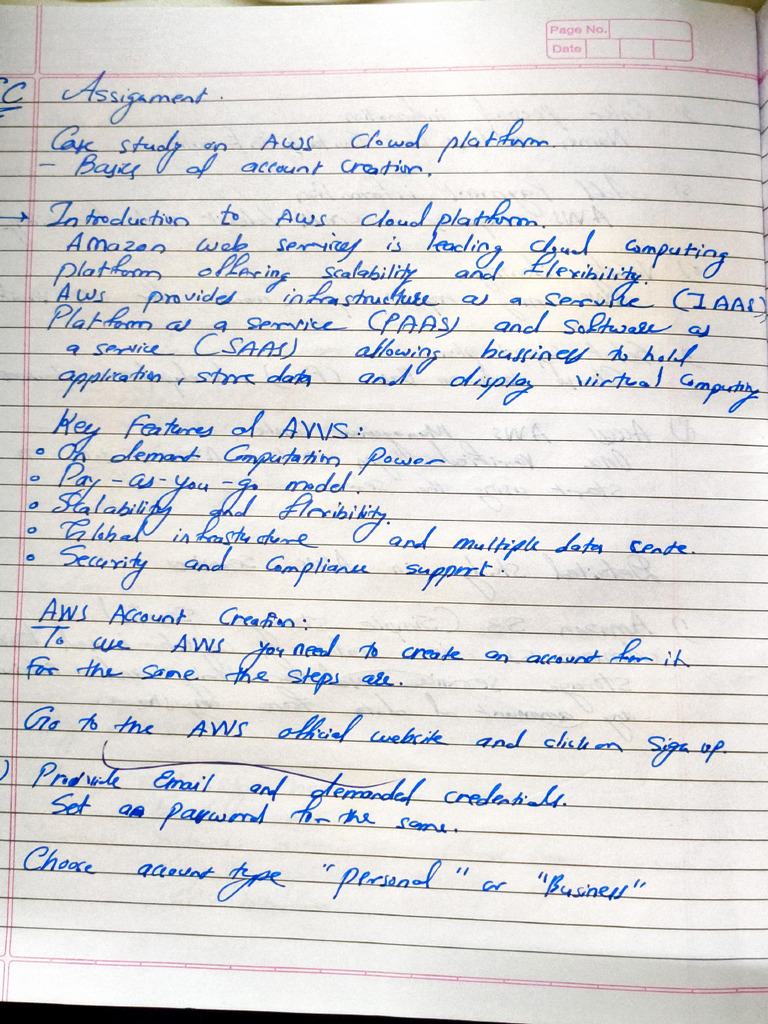 Page No.
Date
CC Assignment.
Case study on AWS Clowd platform.
- Basics of account creation.
→ Introduction to AWS Cloud platform.
Amazon web services is leading cloud computing
platform offering scalability and flexibility.
AWS provides infrastructure as a service (IAAS)
Platform as a service (PAAS) and software as
a service (SAAS) allowing bussiness to hold
application, store data and display virtual computing
Key features of AWS:
• On demant Computation power
• Pay-as-you-go model.
• Scalability and flexibility.
• Global infrastucture and multiple data cente.
• Security and Compliance support.
AWS Account Creation:
To use AWS you need to create an account from it
for the same the steps are.
Go to the AWS official website and click on Sign up.
) Provide Email and demanded credentials.
Set a password for the same.
Choose account type "personal" or "Business"